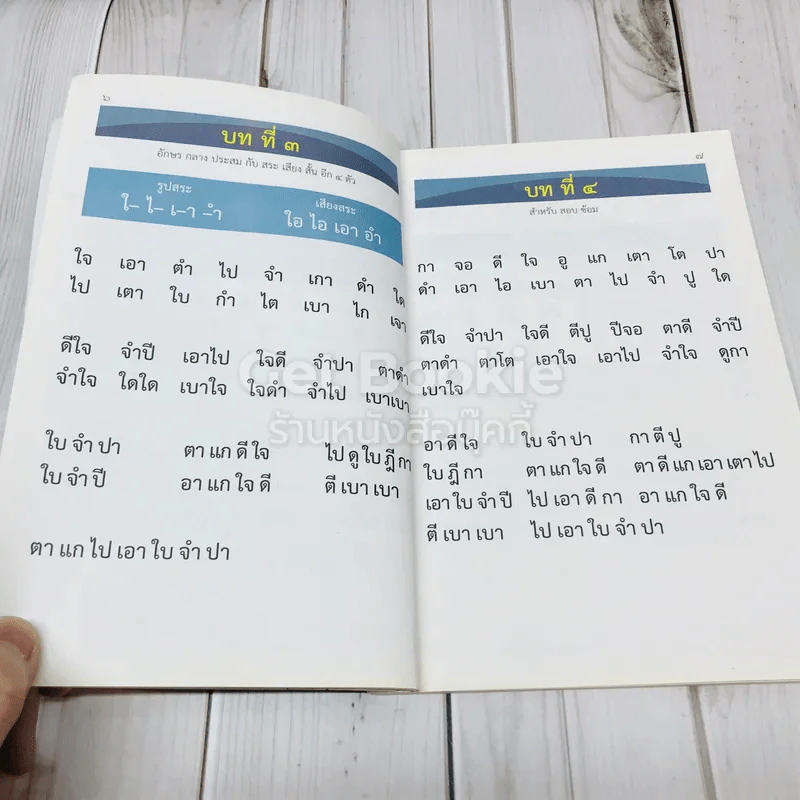 ๖
บท ที่ ๓
อักษร กลาง ประสม กับ สระ เสียง สั้น อีก ๔ ตัว
รูปสระ
ใ– ไ– เ–า –ำ
เสียงสระ
ใอ ไอ เอา อำ
ใจ เอา ตำ ไป จำ เกา ดำ ใด
ไป เตา ใบ กำ ไต เบา ไก เจา
ดีใจ จำปี เอาไป ใจดี จำปา ตาดำ
จำใจ ใดใด เบาใจ ใจดำ จำไป เบาเบา
ใบ จำ ปา ตา แก ดี ใจ ไป ดู ใบ ฎี กา
ใบ จำ ปี อา แก ใจ ดี ตี เบา เบา
ตา แก ไป เอา ใบ จำ ปา
๗
บท ที่ ๔
สำหรับ สอบ ซ้อม
กา จอ ดี ใจ อู แก เตา โต ปา
ดำ เอา ไอ เบา ตา ไป จำ ปู ใด
ดีใจ จำปา ใจดี ตีปู ปีจอ ตาดี จำปี
ตาดำ ตาโต เอาใจ เอาไป จำใจ ดูกา
เบาใจ
อา ดี ใจ ใบ จำ ปา กา ตี ปู
ใบ ฎี กา ตา แก ใจ ดี ตา ดี แก เอา เตา ไป
เอา ใบ จำ ปี ไป เอา ดี กา อา แก ใจ ดี
ตี เบา เบา ไป เอา ใบ จำ ปา
Get Bookie
ร้านหนังสือบุ๊คกี้